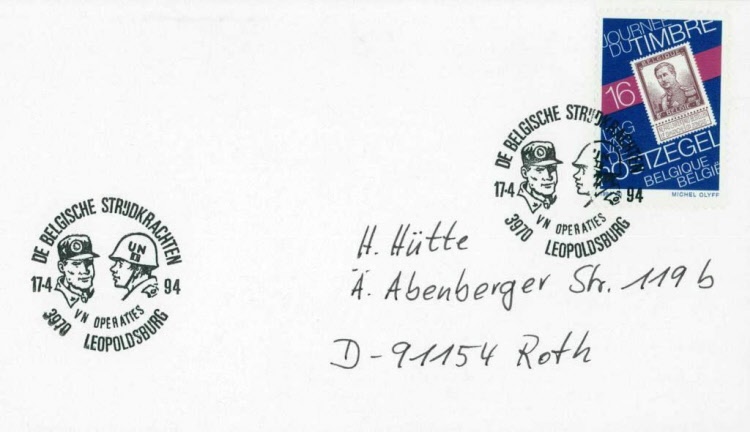 JOURNÉE
DU TIMBRE
BELGIQUE
16
BELGIË
POSTZEGEL
BELGIQUE
BELGIË
MICHEL OLYFF
DE BELGISCHE STRIJDKRACHTEN
17-4 94
VN OPERATIES
3970 LEOPOLDSBURG
H. Hütte
Ä. Abenberger Str. 119 b
D-91154 Roth
DE BELGISCHE STRIJDKRACHTEN
UN
17-4 94
VN OPERATIES
3970 LEOPOLDSBURG